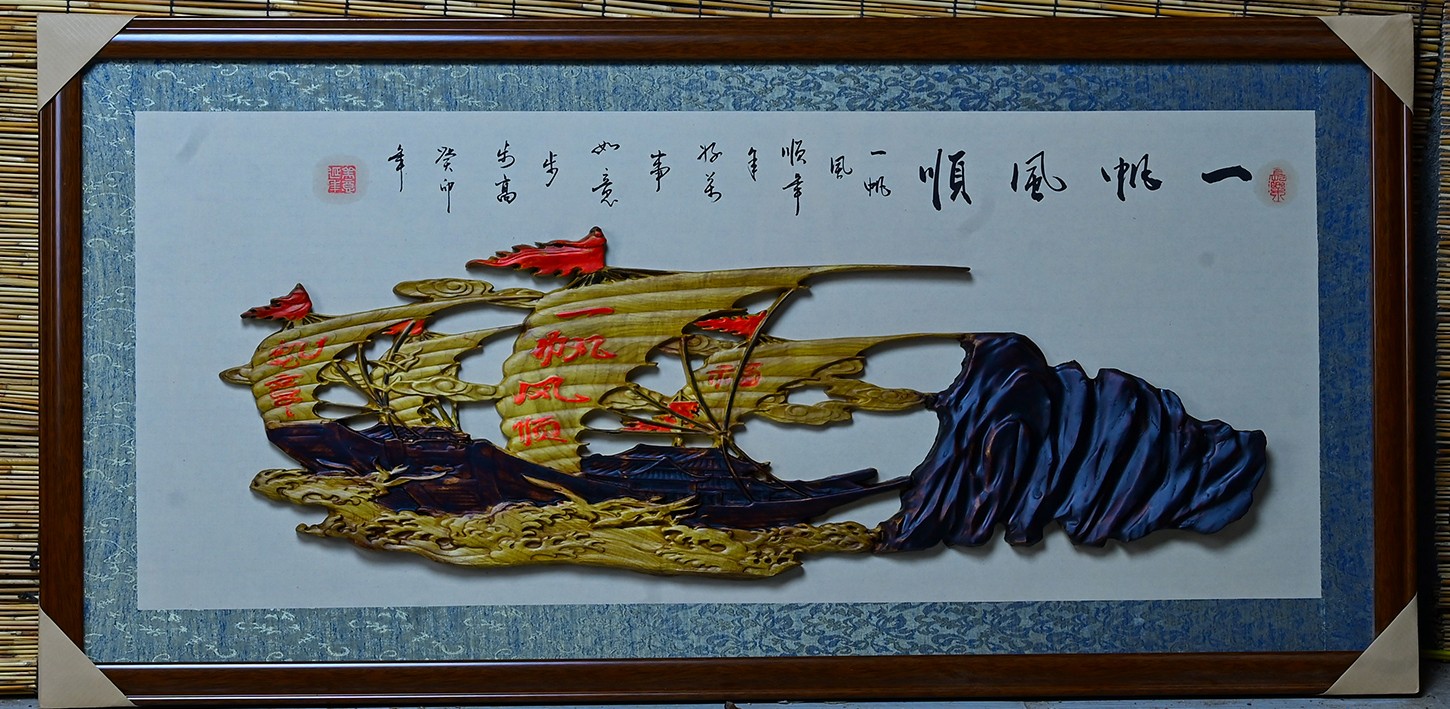 一帆風順
一帆
風
順年
年
好萬
事
如意
步
步高
癸卯
年
一帆风顺
如意
福